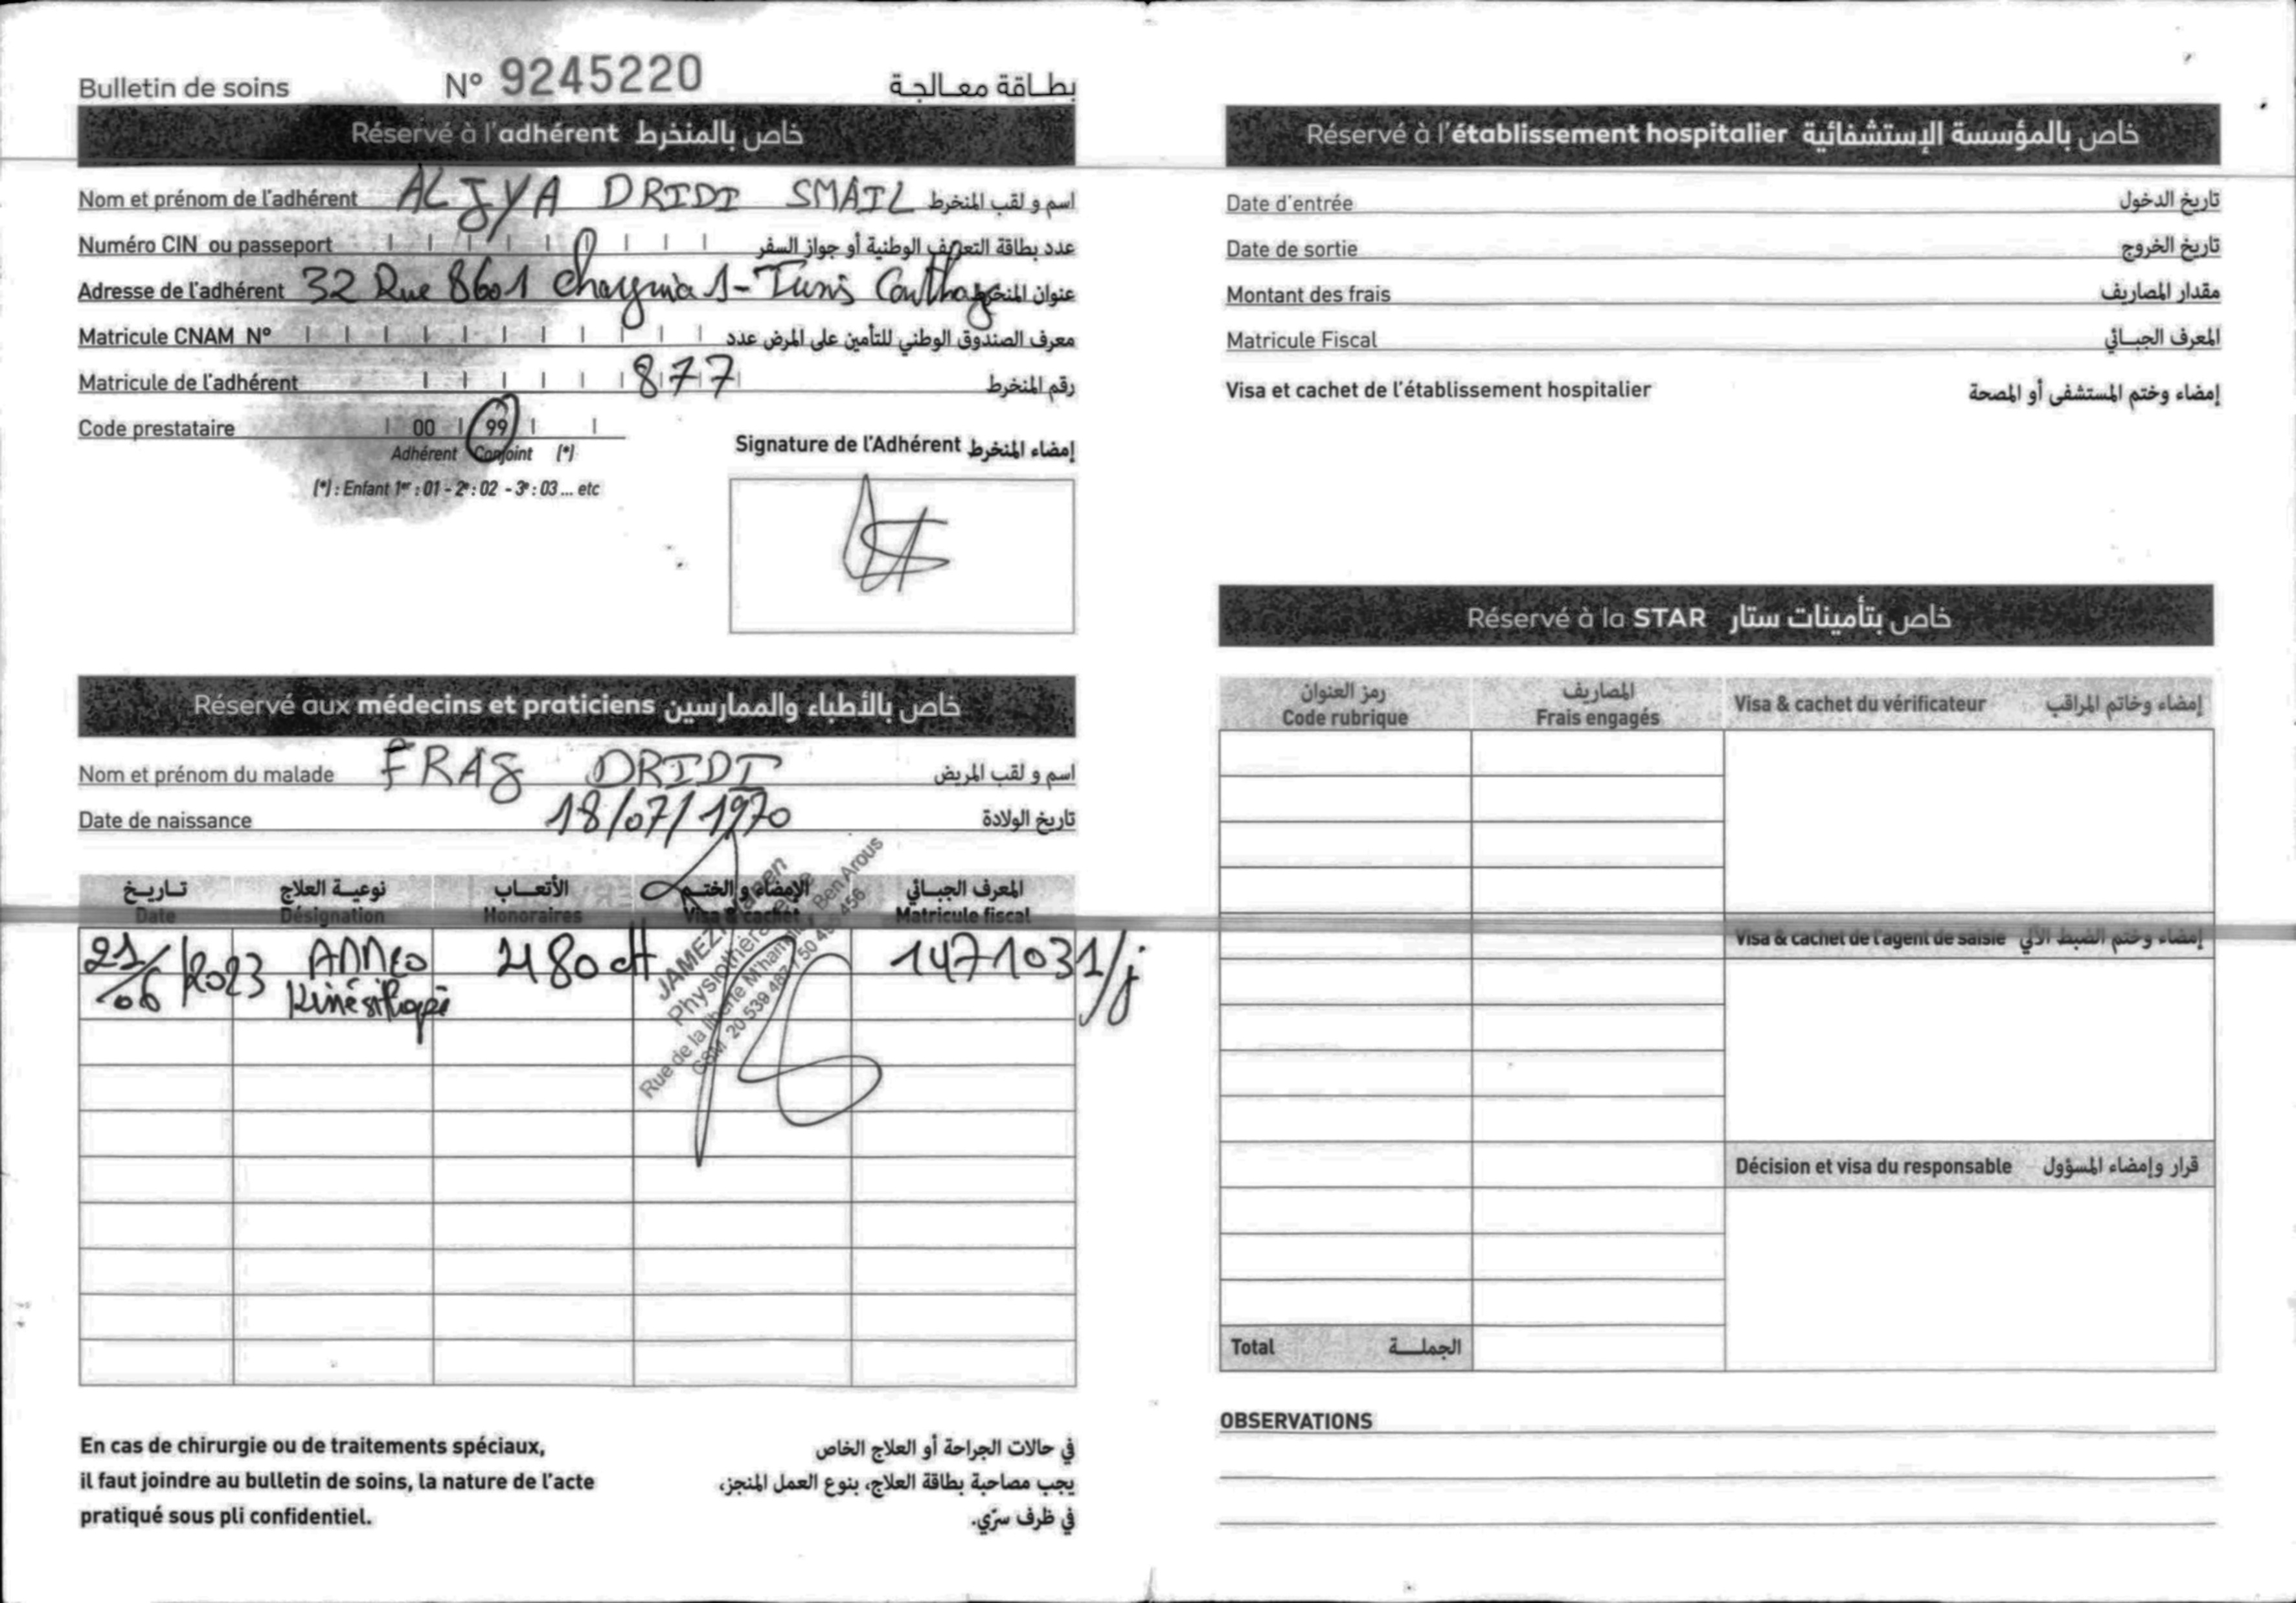 Bulletin de soins N° 9245220 بطاقة معالجة
Réservé à l'adhérent خاص بالمنخرط
Nom et prénom de l'adhérent ALJYA DRIDI SMAIL اسم و لقب المنخرط
Numéro CIN ou passeport عدد بطاقة التعريف الوطنية أو جواز السفر
Adresse de l'adhérent 32 Rue 8601 Charguia 1 - Tunis Carthage عنوان المنخرط
Matricule CNAM N° معرف الصندوق الوطني للتأمين على المرض عدد
Matricule de l'adhérent 877 رقم المنخرط
Code prestataire 00 99
Adhérent Conjoint (*)
(*) : Enfant 1er : 01 - 2e : 02 - 3e : 03 ... etc
Signature de l'Adhérent إمضاء المنخرط
Réservé aux médecins et praticiens خاص بالأطباء والممارسين
Nom et prénom du malade FRAS DRIDI اسم و لقب المريض
Date de naissance 18/07/1970 تاريخ الولادة
تاريخ نوعية العلاج الأتعاب الإمضاء و الختم المعرف الجبائي
Date Désignation Honoraires Visa & cachet Matricule fiscal
21/06/2023 480 dt 1471031/j
JAMEZI
Physiothérapeute
Rue de la liberté M'hamdia Ben Arous
GSM 20 539 487 / 50 456
En cas de chirurgie ou de traitements spéciaux,
il faut joindre au bulletin de soins, la nature de l'acte
pratiqué sous pli confidentiel.
في حالات الجراحة أو العلاج الخاص
يجب مصاحبة بطاقة العلاج، بنوع العمل المنجز،
في ظرف سرّي.
Réservé à l'établissement hospitalier خاص بالمؤسسة الإستشفائية
Date d'entrée تاريخ الدخول
Date de sortie تاريخ الخروج
Montant des frais مقدار المصاريف
Matricule Fiscal المعرف الجبائي
Visa et cachet de l'établissement hospitalier إمضاء وختم المستشفى أو المصحة
Réservé à la STAR خاص بتأمينات ستار
رمز العنوان المصاريف
Code rubrique Frais engagés Visa & cachet du vérificateur إمضاء وخاتم المراقب
Visa & cachet de l'agent de saisie إمضاء وختم الضبط الآلي
Décision et visa du responsable قرار وإمضاء المسؤول
Total الجملة
OBSERVATIONS